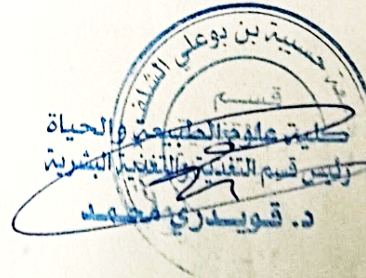 جامعة حسيبة بن بوعلي الشلف
قسم
كلية علوم الطبيعة والحياة
رئيس قسم التغذية والتغذية البشرية
د. قويدري محمد